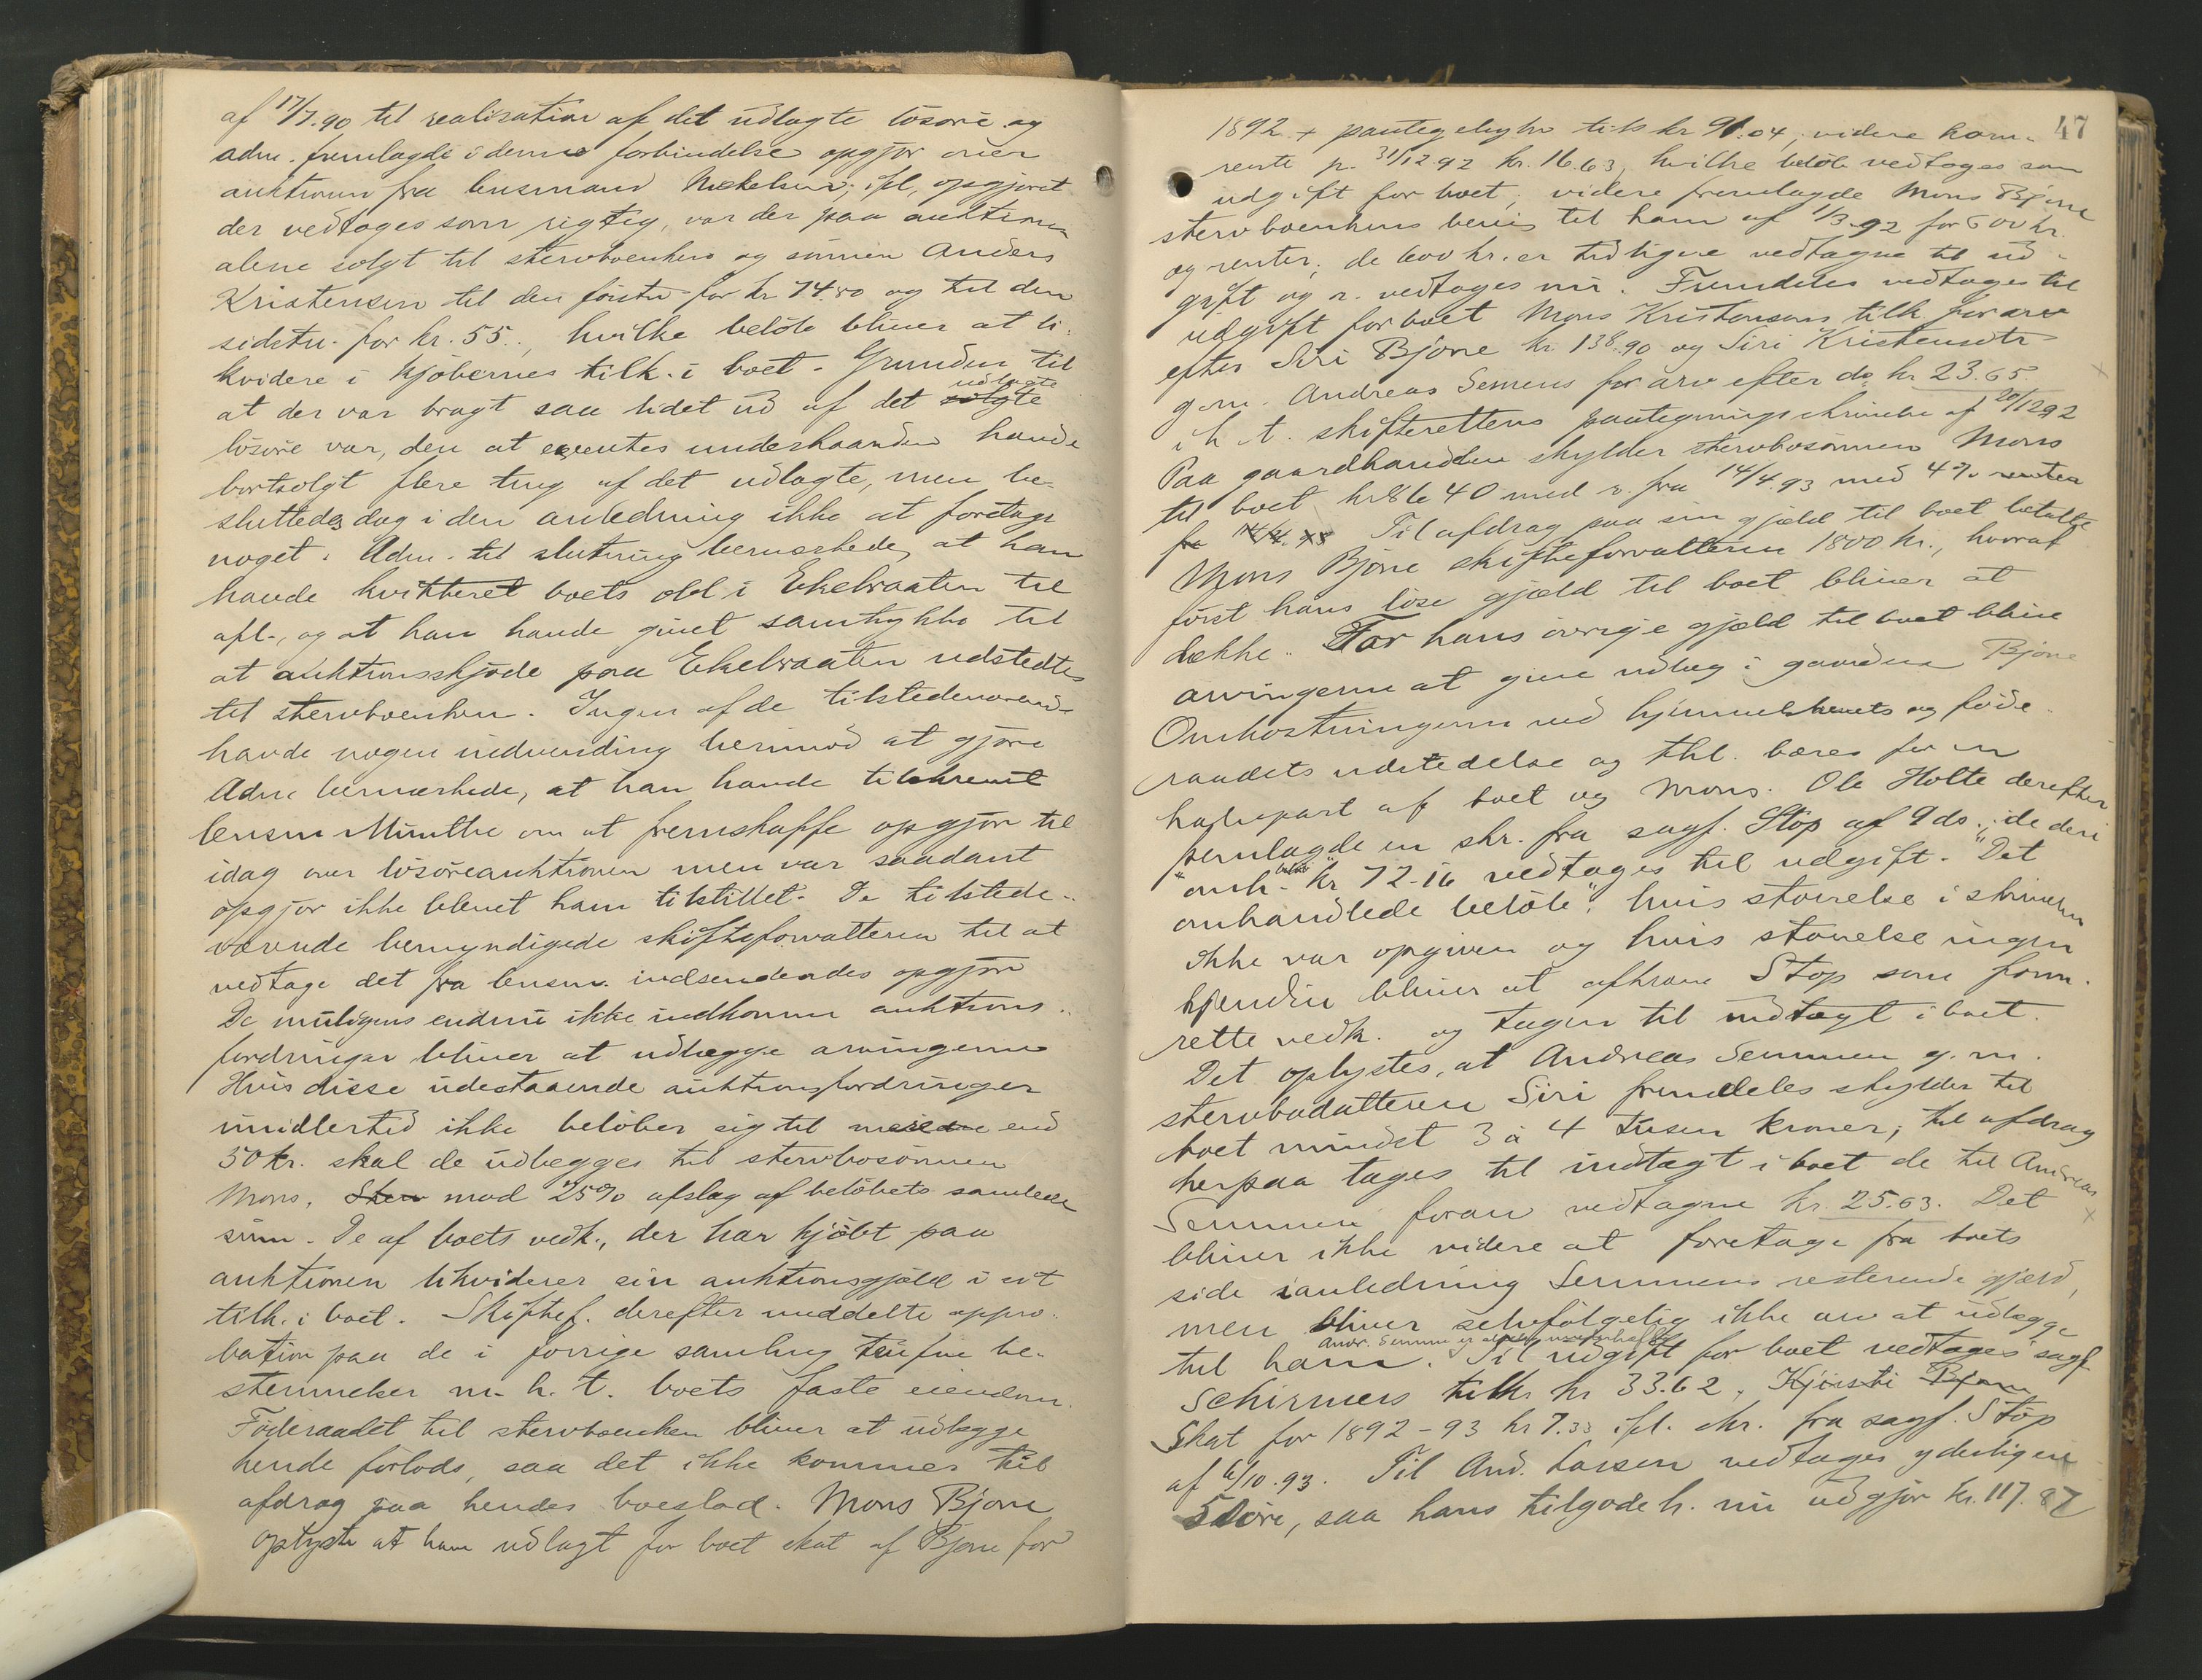 af 17/7.90 til realisation af det udlagte lösöre og
adm. fremlagde i denne forbindelse opgjör over
auktionen fra lensmand ; ifl. opgjöret
der vedtoges som rigtig, var der paa auktionen
alene solgt til stervboenken og sönnen Anders
Kristensen til den förste for kr 74.80 og til den
sidste for kr. 55., hvilke belöb bliver at li-
kvidere i kjöbernes tilk. i boet. Grunden til
udlagte
at der var bragt saa lidet ud af det solgte
lösöre var, den at underhaanden havde
bortsolgt flere ting af det udlagte, men be-
sluttedes dog i den anledning ikke at foretage
noget. Adm. til slutning bemærkede, at han
havde kvitteret boets obl. i Ekebraaten til
afl., og at han havde givet samtykke til
at auktionsskjöde paa Ekebraaten udstedtes
til stervboenken. Ingen af de tilstedeværende
havde nogen indvending herimod at gjöre
Adm bemærkede, at han havde tilskrevet
lensm Munthe om at fremskaffe opgjör til
idag over lösöreauktionen men var saadant
opgjör ikke blevet ham tilstillet. De tilstede-
værende bemyndigede skifteforvalteren til at
vedtage det fra lensm. indsendendes opgjör
De muligens endnu ikke indkomne auktions-
fordringer bliver at udlægge arvingerne
Hvis disse udestaaende auktionsfordringer
imidlertid ikke belöber sig til end
50 kr. skal de udlegges til stervbosönnen
Mons, mod 25% afslag af belöbets samlede
sum. De af boets vedk., der har kjöbt paa
auktionen likviderer sin auktionsgjæld i sit
tilk. i boet. Skiftef. derefter meddelte appro-
bation paa de i forrige samling trufne be-
stemmelser m. h. t. boets faste eiendom.
Föderaadet til stervboenken bliver at udlægge
hende forlods, saa det ikke kommer til
afdrag paa hendes boeslod. Mons Bjöne
oplyste at have udlagt for boet skat af Bjöne for
47
1892 + pantegebyhr tils kr 91.04, videre kom-
rente pr. 31/12 92 kr. 16.63, hvilke belöb vedtages som
udgift for boet; videre fremlagde Mons Bjöne
stervboenkens bevis til ham af 1/3.92 for 600 kr.
og renter; de 600 kr. er tidligere vedtagne til ud-
gift og r. vedtages nu. Fremdeles vedtages til
udgift for boet Mons Kristensens tilk for arv
efter Siri Bjöne kr 138.90 og Siri Kristensdtr
g. m. Andreas Semens for arv efter do kr 23.65
i h t. skifterettens paategningsskrivelse af 20/12 92
Paa gaardhandelen skylder stervbosönnen Mons
til boet kr 8640 med r. fra 14/4.93 med 4% renter
fra 14/4.93 Til afdrag paa sin gjæld til boet betalte
Mons Bjöne skifteforvalteren 1800 kr., hvoraf
först hans löse gjæld til boet bliver at
dække. For hans övrige gjæld til boet blive
arvingerne at give udlæg i gaarden Bjöne
Omkostningerne ved hjemmelsbrevets og föde-
raadets udstedelse og thl. bæres for en
halvpart af boet og Mons. Ole Holte derefter
fremlagde en skr. fra sagf. Stöp af 9 ds.; de deri
"omh. belöb" kr 72.16 vedtages til udgift. "Det
omhandlede belöb", hvis störrelse i skrivelsen
ikke var opgiven og hvis störrelse ingen
kjendte bliver at afkræve Stöp som form.
rette vedk. og tages til indtægt i boet.
Det oplystes, at Andreas Semmen g. m.
stervbodatteren Siri fremdeles skylder til
boet mindst 3 à 4 tusen kroner; til afdrag
herpaa tages til indtægt i boet de til Andreas
Semmen foran vedtagne kr. 25.63. Det
bliver ikke videre at foretage fra boets
side i anledning Semmens resterende gjæld,
men bliver selvfölgelig ikke arv at udlægge
Andr. Semmen er
til ham. Til udgift for boet vedtages sagf.
Schirmers tilk kr 33.62. Kjersti Bjöne
Skat for 1892-93 kr 7.33 ifl. skr. fra sagf. Stöp
af 6/10.93. Til And. Larsen vedtages yderligere
50 öre, saa hans tilgodeh. nu udgjör kr. 117.87